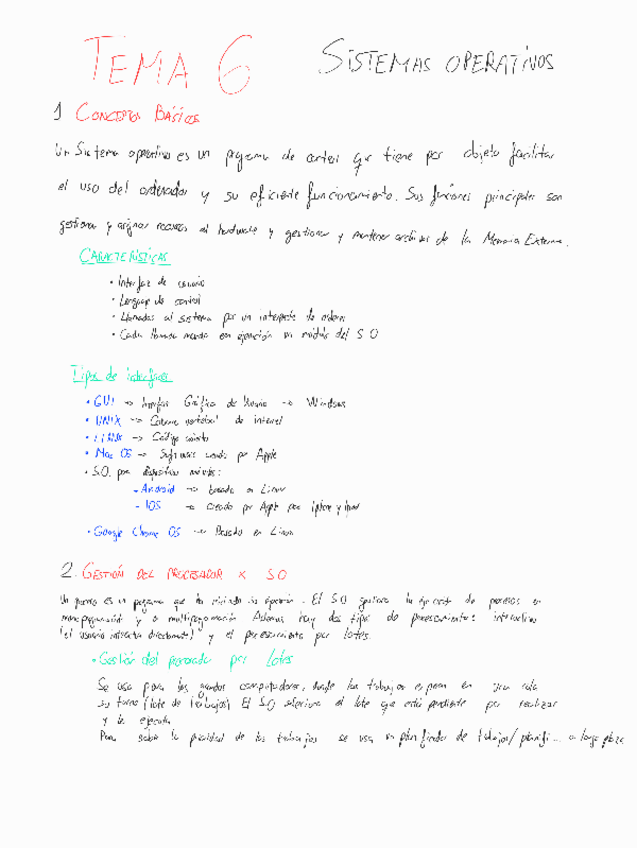 TEMA 6 SISTEMAS OPERATIVOS
1 CONCEPTOS BÁSICOS
Un Sistema operativo es un programa de control que tiene por objeto facilitar
el uso del ordenador y su eficiente funcionamiento. Sus funciones principales son
gestionar y asignar recursos al hardware y gestionar y mantener archivos de la Memoria Externa.
CARACTERÍSTICAS
• Interfaz de usuario
• Lenguaje de control
• Llamadas al sistema por un interprete de ordenes
• Cada llamada manda en ejecución un módulo del S O
Tipos de interfaces
• GUI -> Interfaz Gráfica de Usuario -> Windows
• UNIX -> de internet
• LINUX -> Código abierto
• Mac OS -> Software creado por Apple
• S.O. para dispositivos móviles:
- Android -> basado en Linux
- IOS -> creado por Apple para iphone y ipad
• Google Chrome OS -> Basado en Linux
2. GESTIÓN DEL PROCESADOR X S.O
Un proceso es un programa que ha iniciado su ejecución. El S.O gestiona la ejecución de procesos en
monoprogramación y o multiprogramación Además hay dos tipos de procesamientos: interactivo
(el usuario interactua directamente) y el procesamiento por lotes.
• Gestión del procesador por lotes
Se usa para los grandes computadores, donde los trabajos esperan en una cola
su turno (lote de trabajos) El S.O selecciona el lote que está pendiente por realizar
y lo ejecuta
Para saber la prioridad de los trabajos se usa un planificador de trabajos/ planifi... a largo plazo